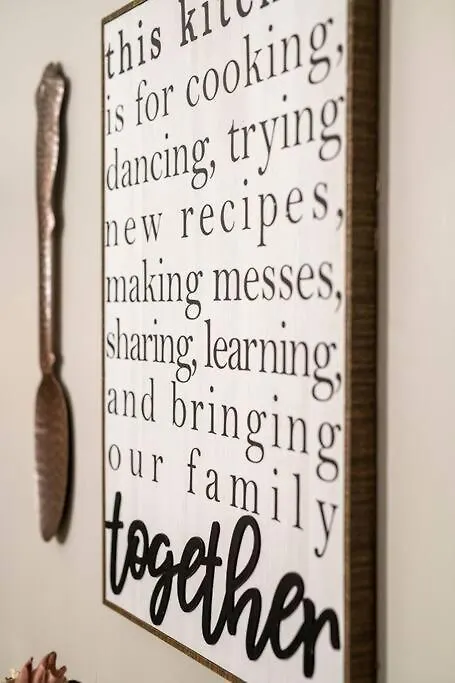 this kitchen
is for cooking,
dancing, trying
new recipes,
making messes,
sharing, learning,
and bringing
our family
together